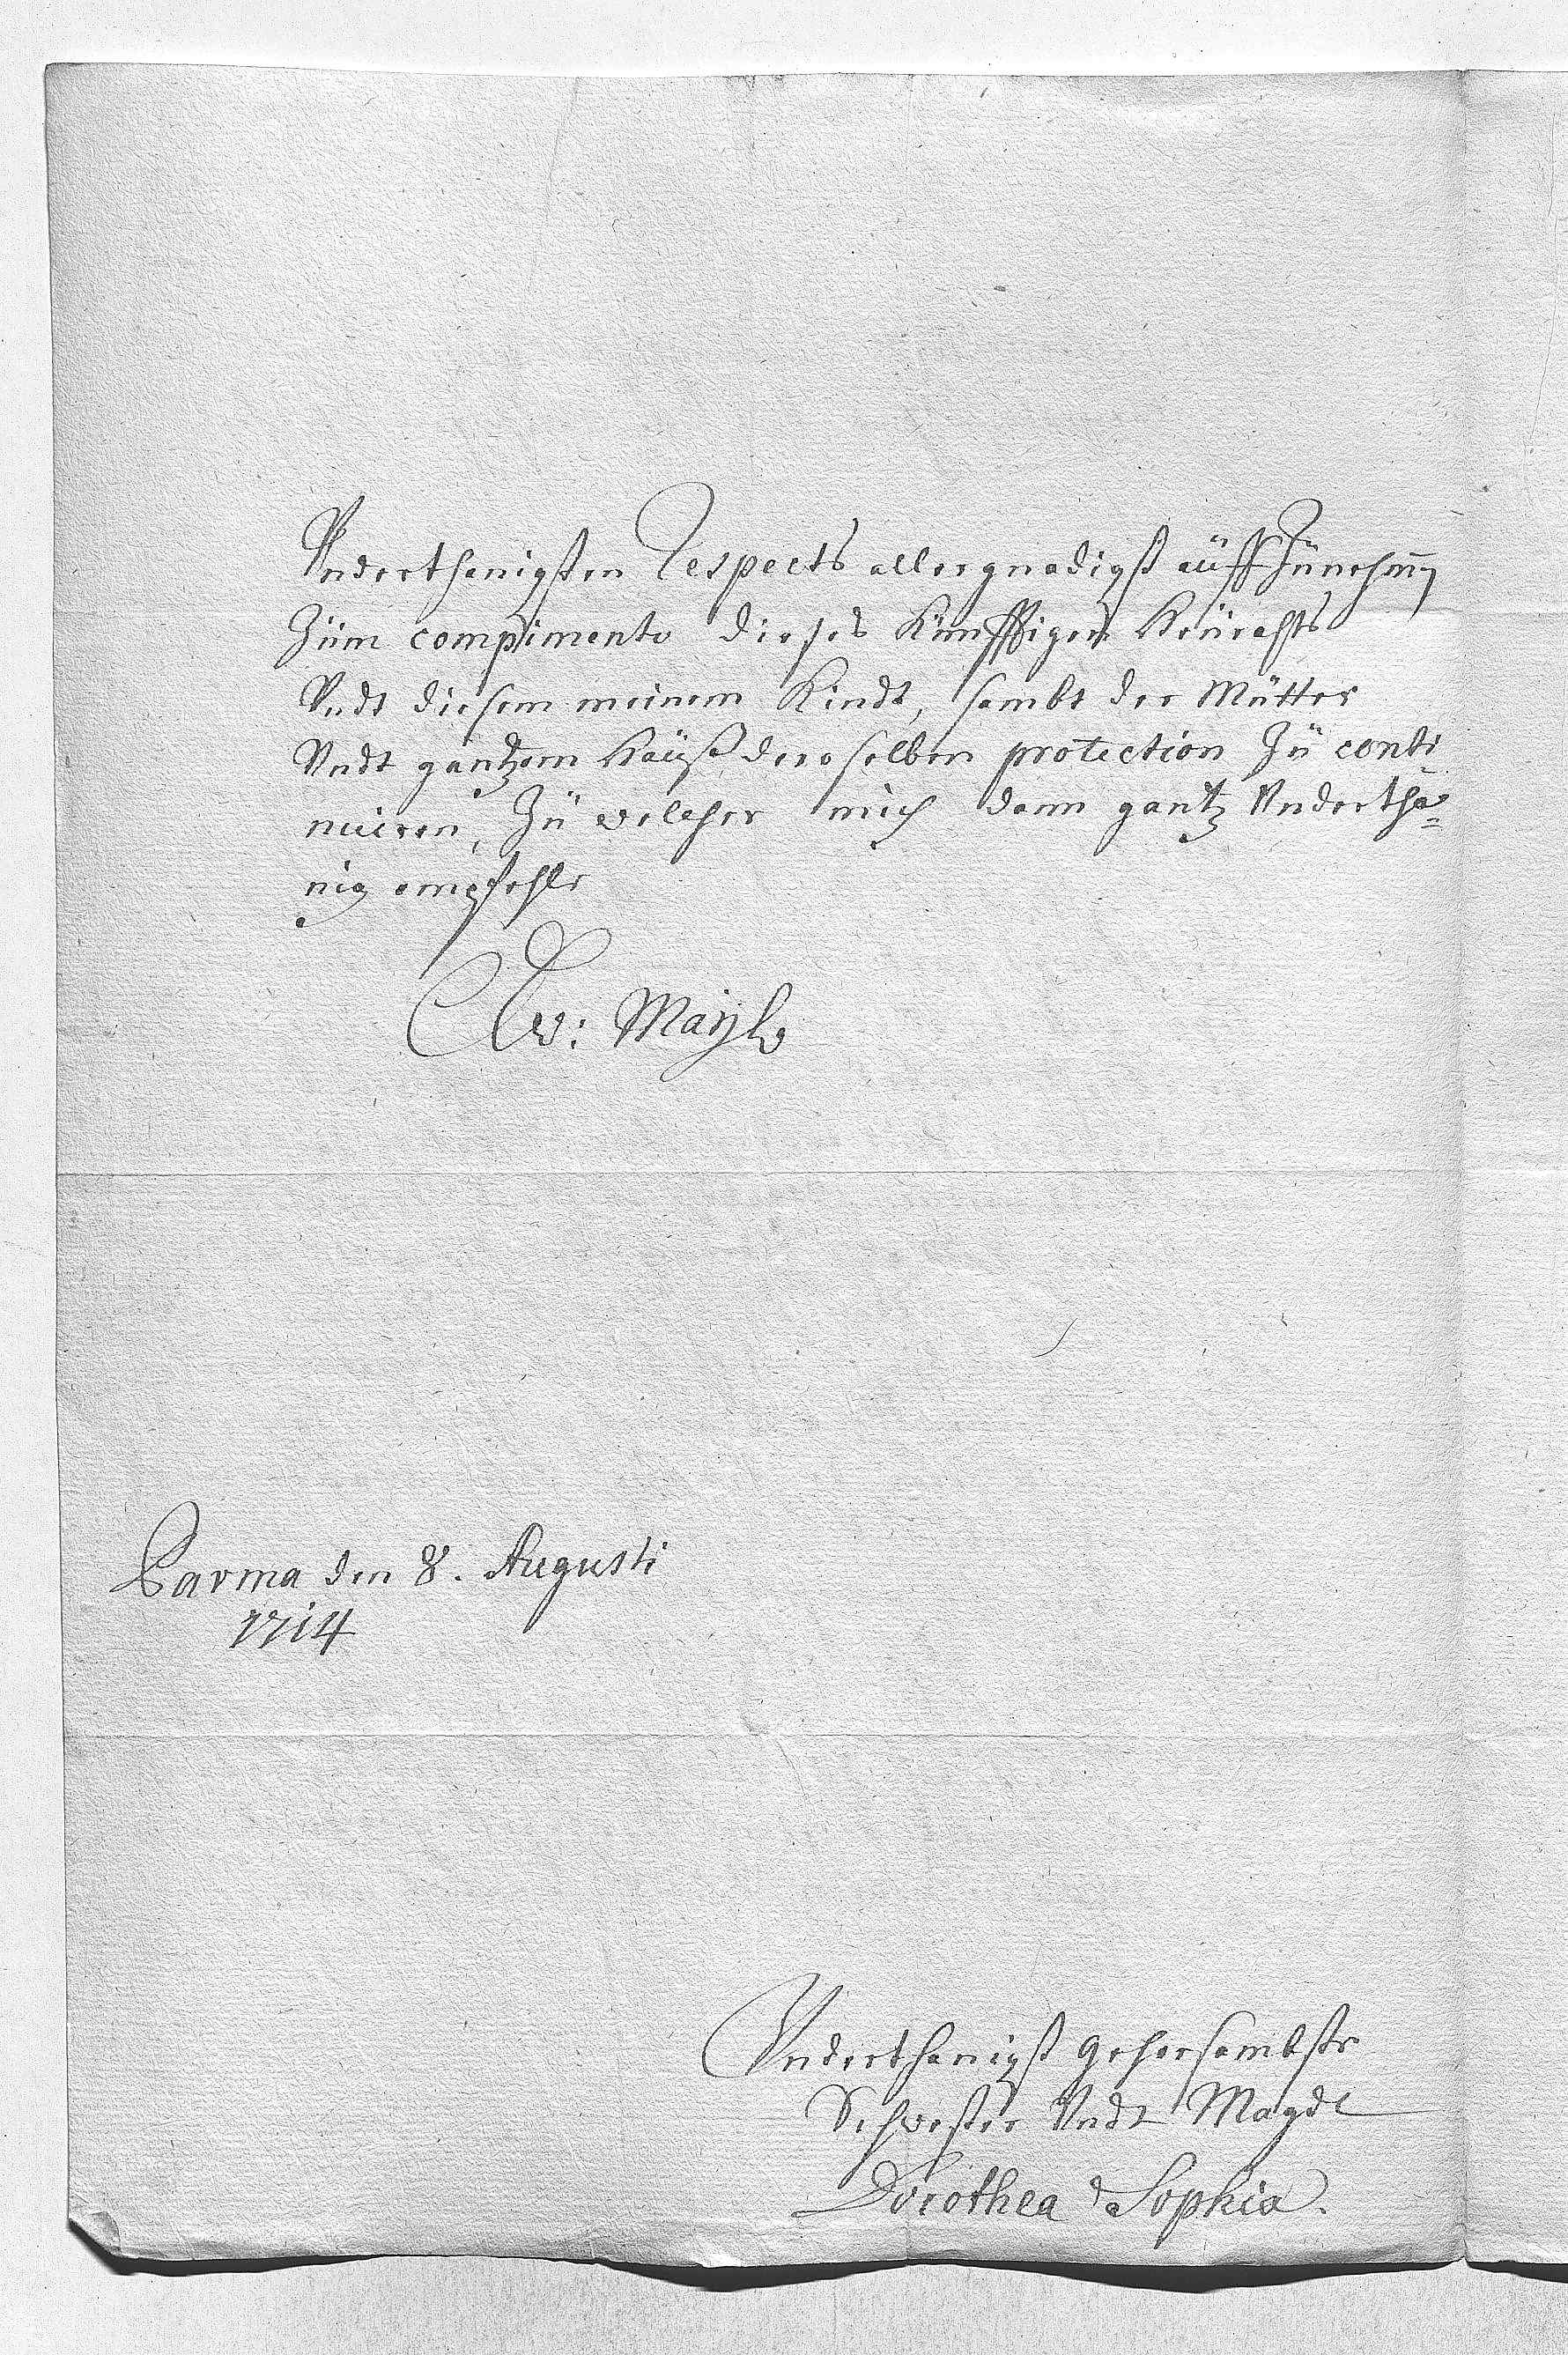 Underthenigsten Respects allergnadigst auff Zünehmen
Züm compimento dieses Künfftigen Heürahts
Undt diesem meinem Kindt, sambt der Mütter
Undt gantzem Hauß deroselben protection Zü conti
nuiren, Zü welcher mich dann gantz Undertha=
nig empfehle
Ew: Mayst
Parma den 8. Augusti
1714
Underthenigst gehorsambste
Schwester Undt Magdt
Dorothea Sophia.